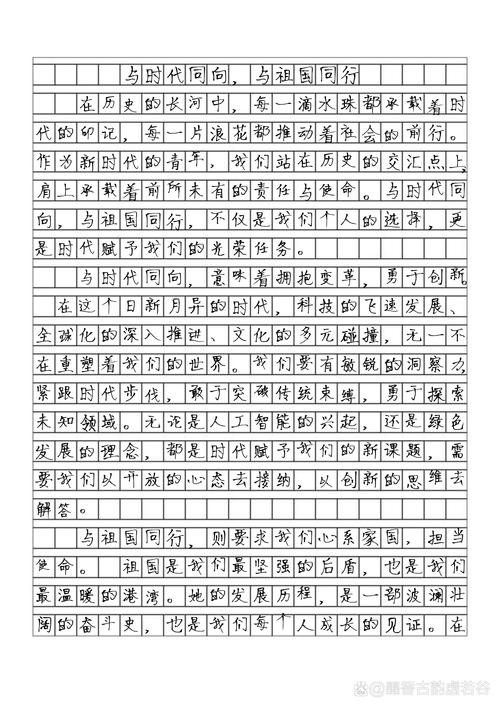 与时代同向，与祖国同行
在历史的长河中，每一滴水珠都承载着时
代的印记，每一片浪花都推动着社会的前行。
作为新时代的青年，我们站在历史的交汇点上，
肩上承载着前所未有的责任与使命。与时代同
向，与祖国同行，不仅是我们个人的选择，更
是时代赋予我们的光荣任务。
与时代同向，意味着拥抱变革，勇于创新。
在这个日新月异的时代，科技的飞速发展、
全球化的深入推进、文化的多元碰撞，无一不
在重塑着我们的世界。我们要有敏锐的洞察力，
紧跟时代步伐，敢于突破传统束缚，勇于探索
未知领域。无论是人工智能的兴起，还是绿色
发展的理念，都是时代赋予我们的新课题，需
要我们以开放的心态去接纳，以创新的思维去
解答。
与祖国同行，则要求我们心系家国，担当
使命。 祖国是我们最坚强的后盾，也是我们
最温暖的港湾。她的发展历程，是一部波澜壮
阔的奋斗史，也是我们每个人成长的见证。在